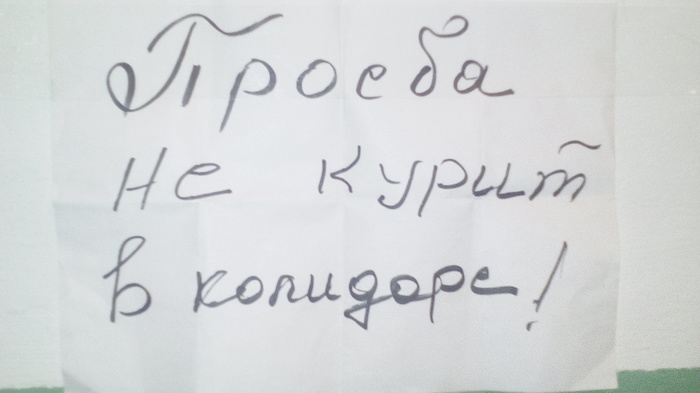 Проеба
не курит
в колидоре!